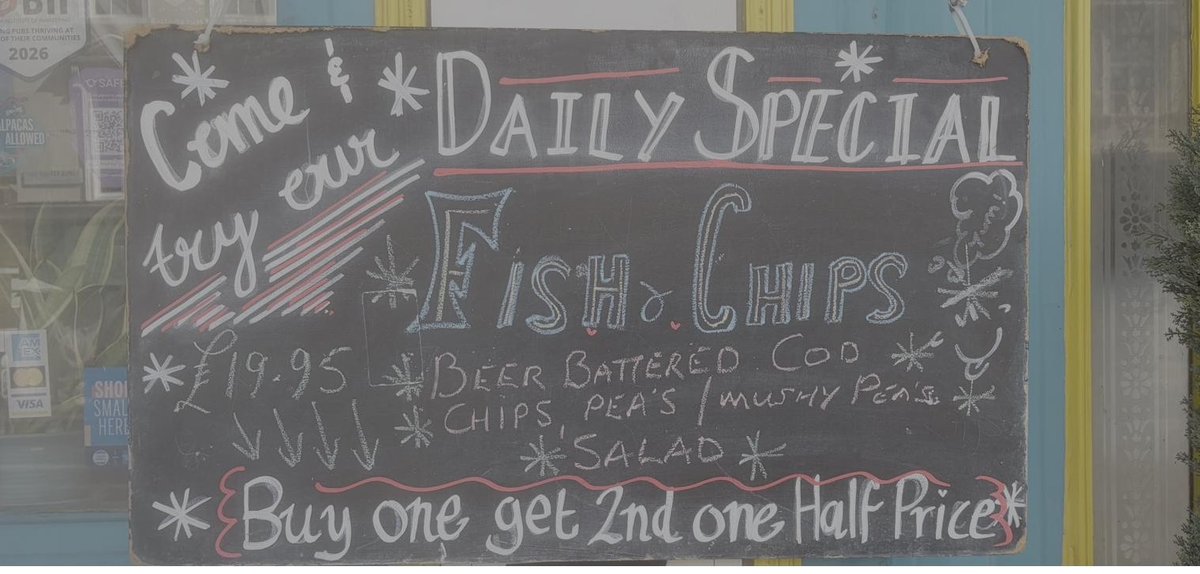 BII
NG PUBS THRIVING AT
OF THEIR COMMUNITIES
2026
ALPACAS
ALLOWED
SAFE
Come &
try our
DAILY SPECIAL
FISH & CHIPS
£19.95
BEER BATTERED COD
CHIPS, PEA'S / MUSHY PEA'S
SALAD
Buy one get 2nd one Half Price
AM
EX
VISA
SHOP
SMALL
HERE